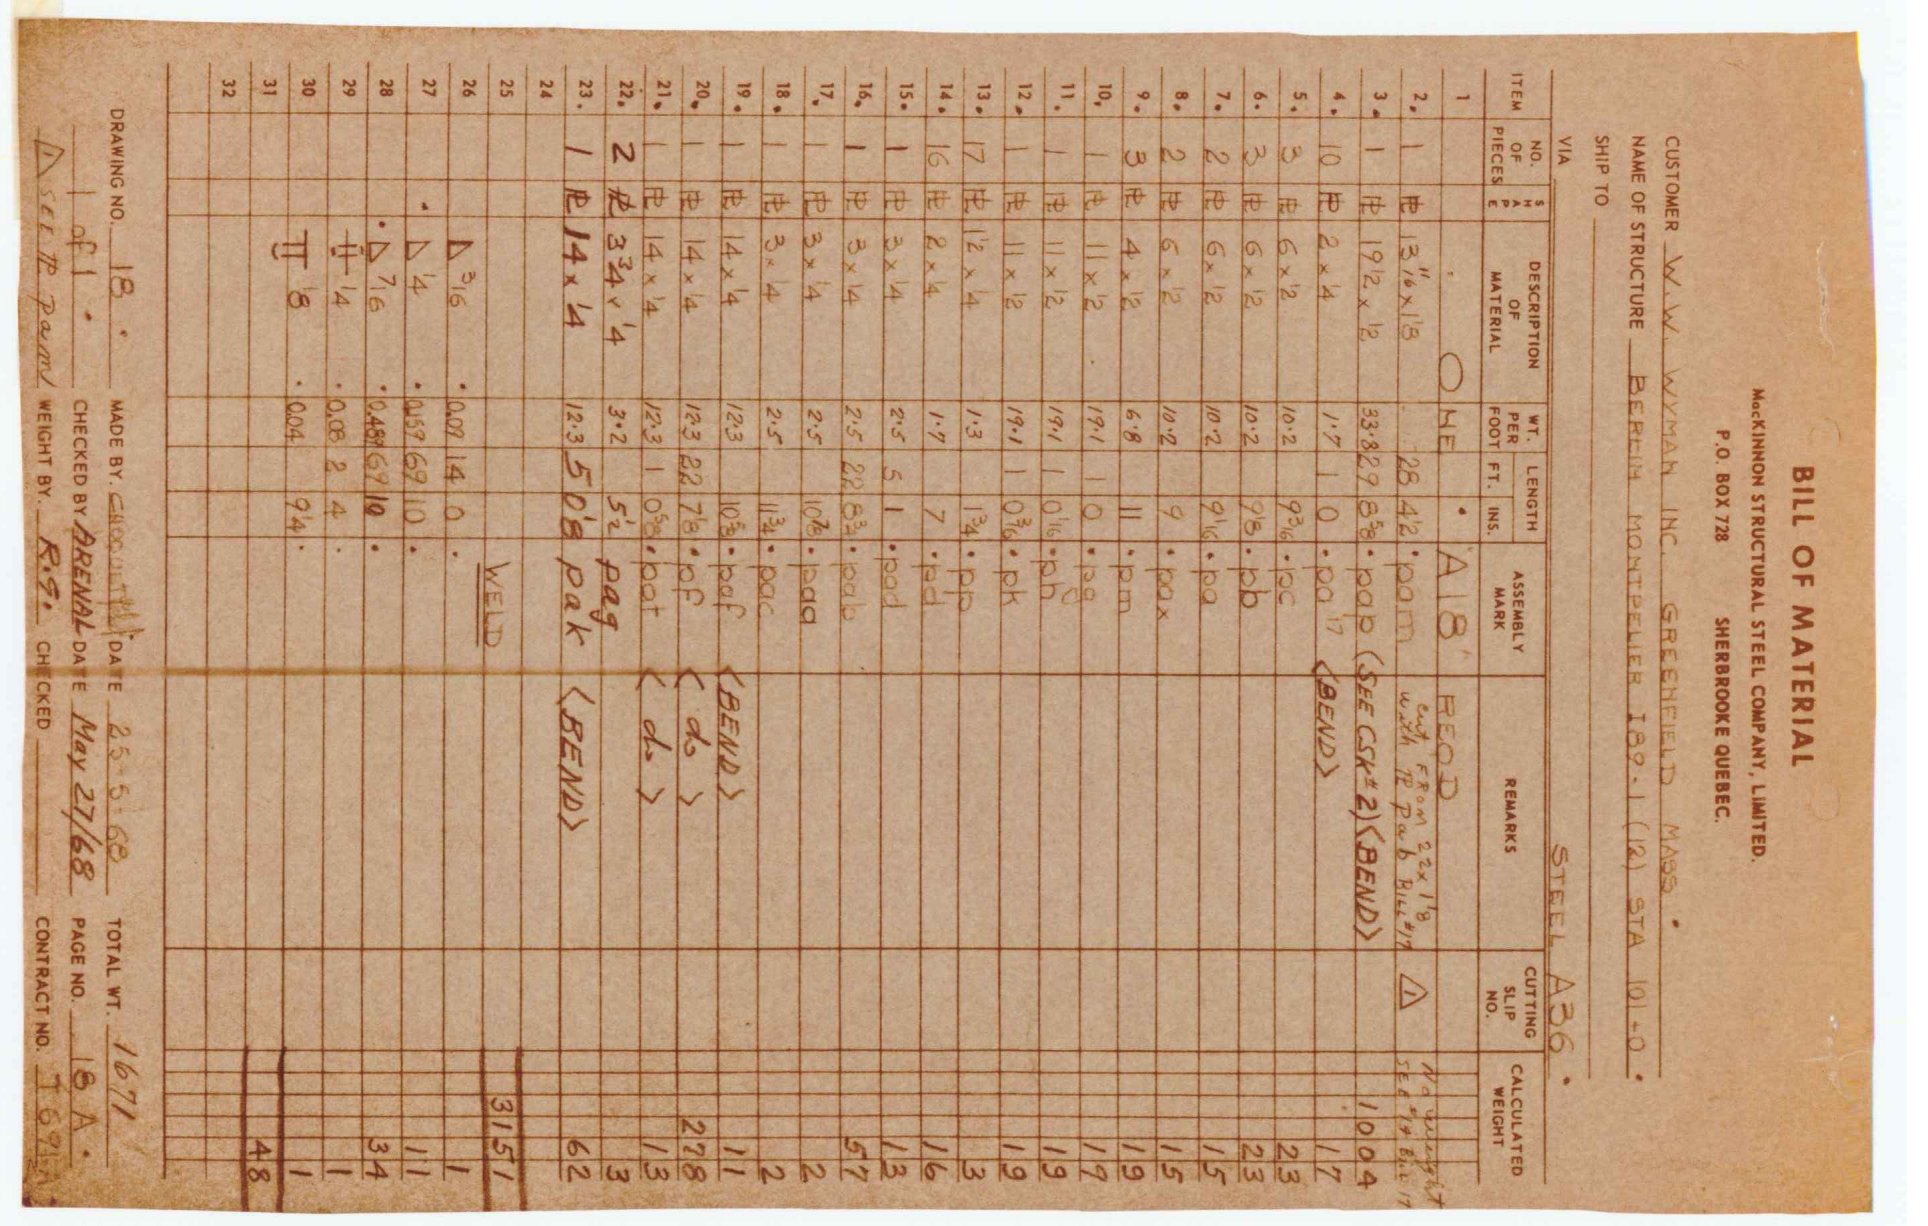 BILL OF MATERIAL
MacKINNON STRUCTURAL STEEL COMPANY, LIMITED.
P.O. BOX 728 SHERBROOKE QUEBEC.
CUSTOMER W.W. WYMAN INC. GREENFIELD MASS.
NAME OF STRUCTURE BERLIN MONTPELIER I89-1 (12) STA 101-0.
SHIP TO
VIA STEEL A36.
ITEM NO. OF PIECES SHAPE DESCRIPTION OF MATERIAL WT. PER FOOT LENGTH FT. INS. ASSEMBLY MARK REMARKS CUTTING SLIP NO. CALCULATED WEIGHT
1 ONE A18 REQD No weight
2. 1 PL 13 11/16 x 1 1/8 28 4 1/2 pam cut FROM 22 x 1 1/8 with PL pab BILL #17 △1 SEE #14 Bill 17
3. 1 PL 19 1/2 x 1/2 33.8 29 8 5/8 pap (SEE CSK# 2) <BEND> 1004
4. 10 PL 2 x 1/4 1.7 1 0 pa 17 <BEND> 17
5. 3 PL 6 x 1/2 10.2 9 3/16 pc 23
6. 3 PL 6 x 1/2 10.2 9 1/8 pb 23
7. 2 PL 6 x 1/2 10.2 9 1/16 pa 15
8. 2 PL 6 x 1/2 10.2 9 pax 15
9. 3 PL 4 x 1/2 6.8 11 pm 19
10. 1 PL 11 x 1/2 19.1 1 0 pg 19
11. 1 PL 11 x 1/2 19.1 1 0 1/16 ph 19
12. 1 PL 11 x 1/2 19.1 1 0 3/16 pk 19
13. 17 PL 1 1/2 x 1/4 1.3 1 3/4 pp 3
14. 16 PL 2 x 1/4 1.7 7 pd 16
15. 1 PL 3 x 1/4 2.5 5 1 pad 13
16. 1 PL 3 x 1/4 2.5 22 8 3/4 pab 57
17. 1 PL 3 x 1/4 2.5 10 7/8 paa 2
18. 1 PL 3 x 1/4 2.5 11 3/4 pac 2
19. 1 PL 14 x 1/4 12.3 10 5/8 paf <BEND> 11
20. 1 PL 14 x 1/4 12.3 22 7 1/8 pf < do > 278
21. 1 PL 14 x 1/4 12.3 1 0 5/8 pat < do > 13
22. 2 PL 3 3/4 x 1/4 3.2 5 1/2 pag 3
23. 1 PL 14 x 1/4 12.3 5 0 1/8 pak <BEND> 62
24
25 WELD 3151
26 △ 3/16 0.09 14 0 1
27 △ 1/4 0.159 69 10 11
28 △ 7/16 0.489 69 10 34
29 1/4 0.08 2 4 1
30 1/8 0.04 9 1/4 1
31 48
32
DRAWING NO. 18 MADE BY. DATE 25-5-68 TOTAL WT. 1671
1 of 1 CHECKED BY ARENAL DATE May 27/68 PAGE NO. 18 A.
△1 SEE PL pam WEIGHT BY. R.G. CHECKED CONTRACT NO.